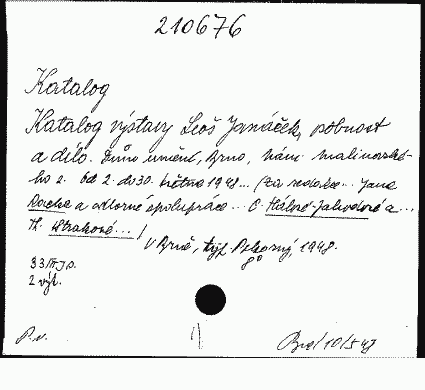 210676
Katalog
Katalog výstavy Leoš Janáček, osobnost
a dílo. Dům umění, Brno, nám. Malinovské-
ho 2. Od 2. do 30. května 1948... (Za redakce... Jana
Racka a odborné spolupráce... C. Hálové-Jahodové a...
Th. Strakové...)
V Brně, typ. Pokorný, 1948.
8°
33 pp.
2 výt.
P. v.